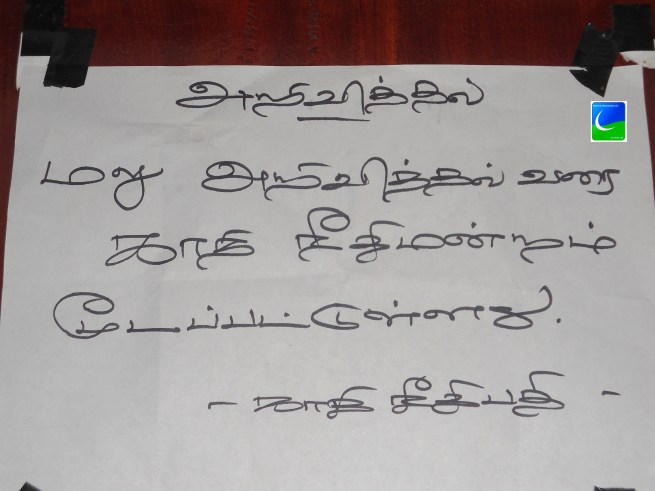 அறிவித்தல்
மறு அறிவித்தல் வரை
காதி நீதிமன்றம்
மூடப்பட்டுள்ளது.
- காதி நீதிபதி -